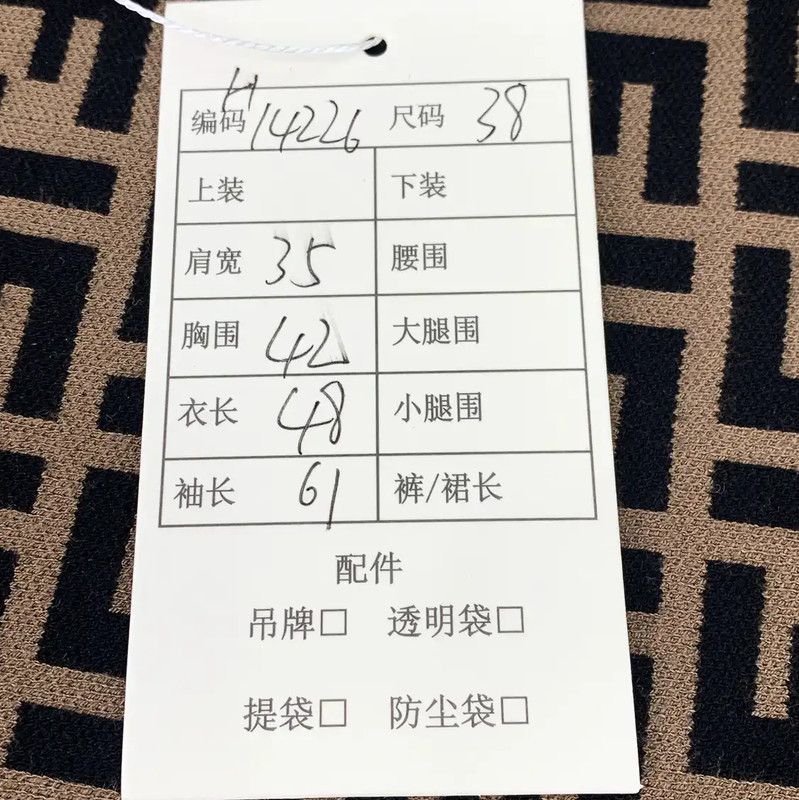 编码 H14226 尺码 38
上装 下装
肩宽 35 腰围
胸围 42 大腿围
衣长 48 小腿围
袖长 61 裤/裙长
配件
吊牌□ 透明袋□
提袋□ 防尘袋□